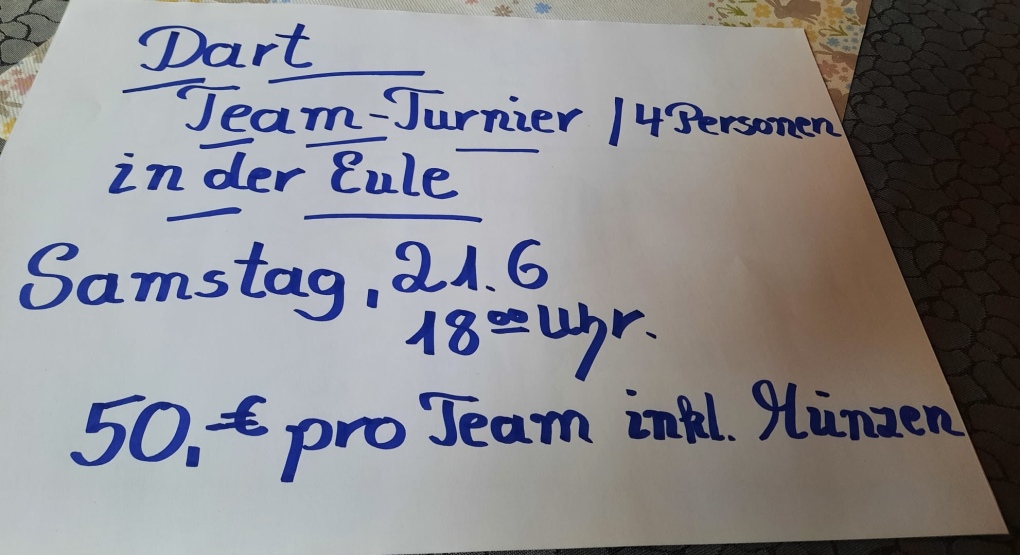 Dart
Team-Turnier / 4 Personen
in der Eule
Samstag, 21.6
18⁰⁰ Uhr.
50,-€ pro Team inkl. Münzen